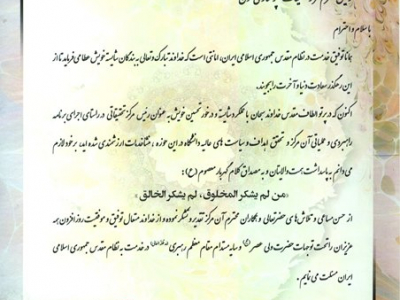 با سلام و احترام
همانا توفیق خدمت در نظام مقدس جمهوری اسلامی ایران، امانتی است که خداوند تبارک و تعالی به بندگان شایسته خویش عطا می فرماید تا از
این رهگذر سعادت دنیا و آخرت را بجویند.
اکنون که در پرتو الطاف مقدس خداوند سبحان با عملکرد شایسته و در خور تحسین خویش به عنوان رئیس مرکز تحقیقاتی در راستای اجرای برنامه
راهبردی و عملیاتی آن مرکز و تحقق اهداف و سیاست های عالیه دانشگاه در این حوزه، منشأ خدمات ارزشمندی شده اید، بر خود لازم
می دانم به پاسداشت همت والایتان و به مصداق کلام گهربار معصوم (ع):
«من لم یشکر المخلوق، لم یشکر الخالق»
از حسن مساعی و تلاش های حضرتعالی و همکاران محترم آن مرکز تقدیر و تشکر نموده و از خداوند متعال توفیق و موفقیت روز افزون همه
عزیزان را تحت توجهات حضرت ولی عصر و سایه مستدام مقام معظم رهبری در خدمت به نظام مقدس جمهوری اسلامی
ایران مسئلت می نمایم.